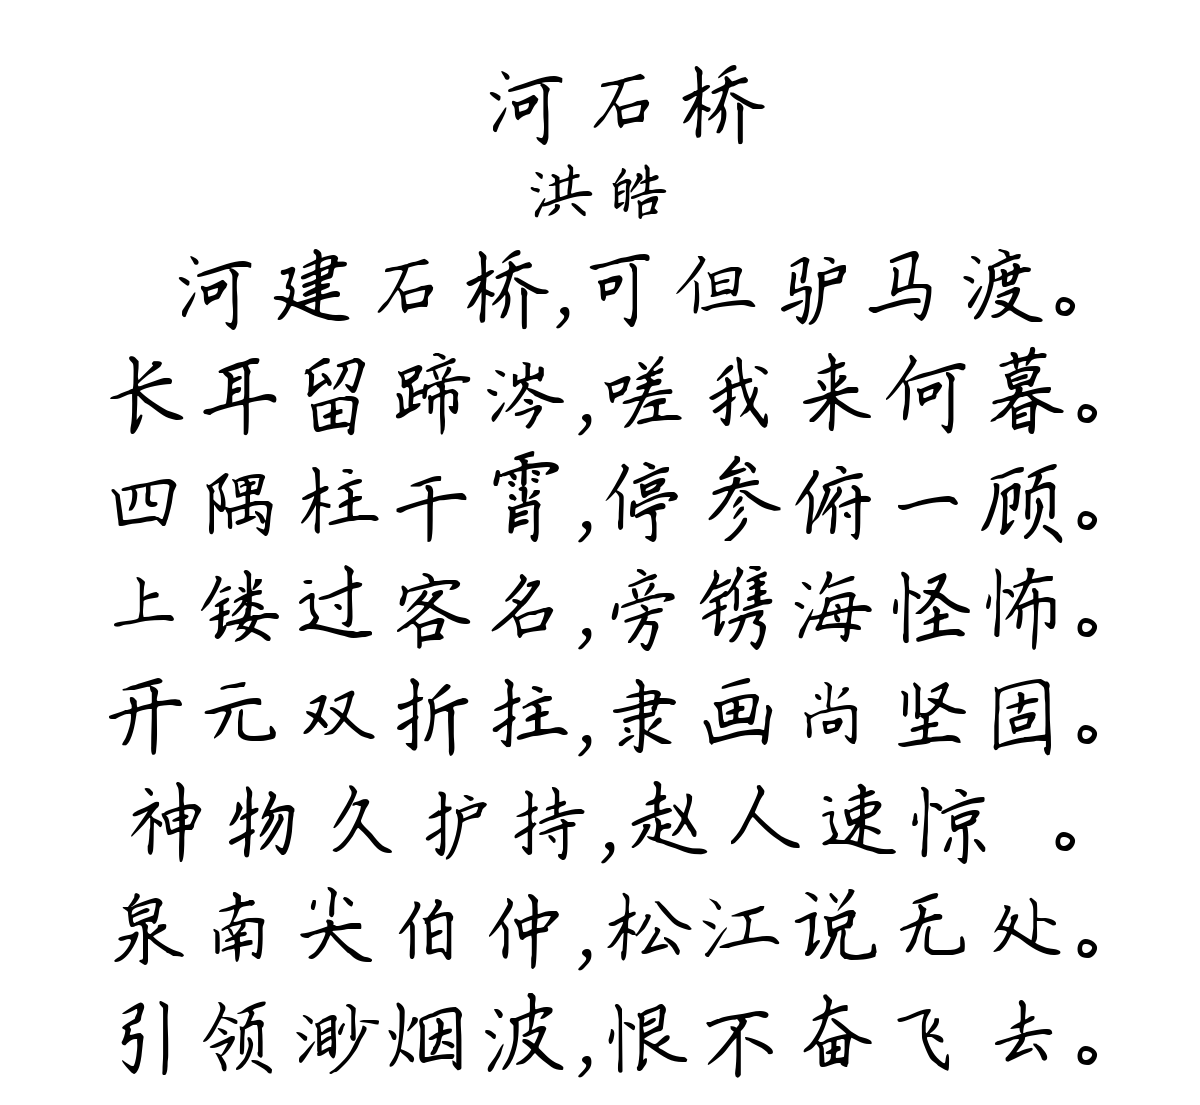 河石桥
洪皓
河建石桥,可但驴马渡。
长耳留蹄涔,嗟我来何暮。
四隅柱干霄,停参俯一顾。
上镂过客名,旁镌海怪怖。
开元双折拄,隶画尚坚固。
神物久护持,赵人速惊 。
泉南尖伯仲,松江说无处。
引领渺烟波,恨不奋飞去。